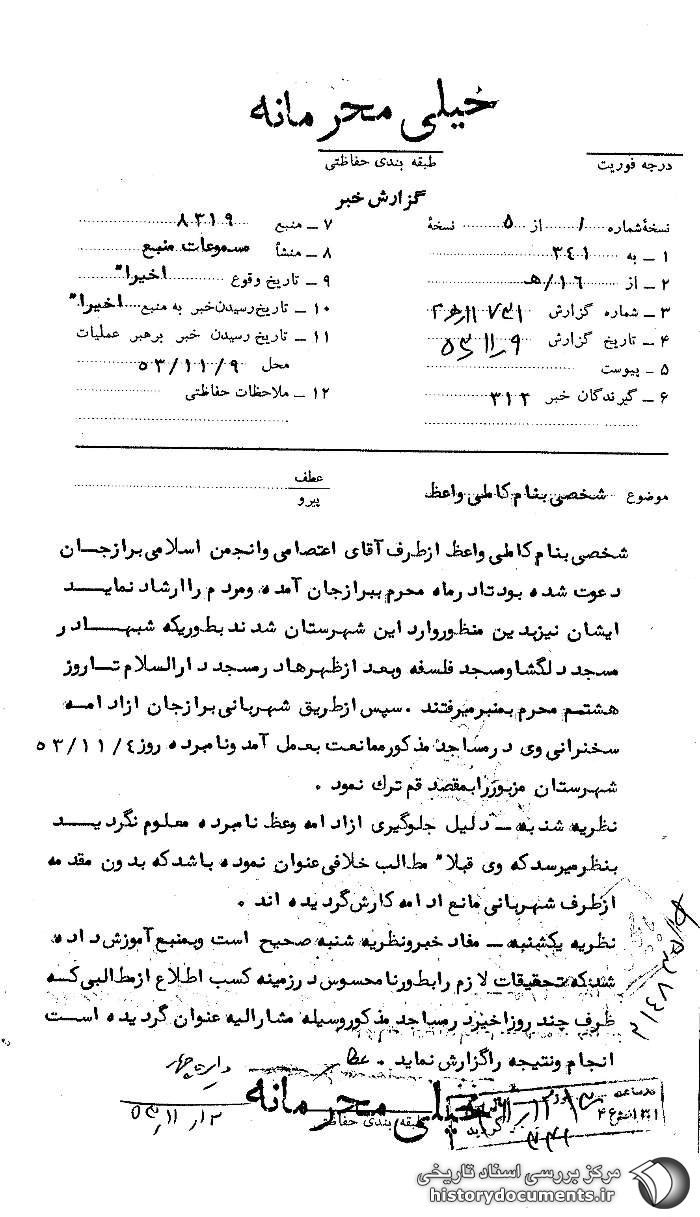 خیلی محرمانه
طبقه بندی حفاظتی
درجه فوریت
گزارش خبر
نسخهٔ شماره ۱ از ۵ نسخهٔ
۱ ـ به ۳۴۱
۲ ـ از ۱۶/هـ
۳ ـ شماره گزارش
۴ ـ تاریخ گزارش ۹ر۱۱ر۵۳
۵ ـ پیوست
۶ ـ گیرندگان خبر ۳۱۲
۷ ـ منبع ۸۳۱۹
۸ ـ منشأ مسموعات منبع
۹ ـ تاریخ وقوع اخیرا"
۱۰ ـ تاریخ رسیدن خبر به منبع اخیرا"
۱۱ ـ تاریخ رسیدن خبر برهبر عملیات
محل ۵۳/۱۱/۹
۱۲ ـ ملاحظات حفاظتی
موضوع شخصی بنام کاملی واعظ
عطف
پیرو
شخصی بنام کاملی واعظ ازطرف آقای اعتصامی وانجمن اسلامی برازجان
دعوت شده بودتاد رماه محرم ببرازجان آمده ومردم راارشاد نماید
ایشان نیزبدین منظوروارد این شهرستان شدند بطوریکه شبها در
مسجد دلگشاومسجد فلسفه وبعد ازظهرهاد رمسجد دارالسلام تاروز
هشتم محرم بمنبرمیرفتند . سپس ازطریق شهربانی برازجان ازادامه
سخنرانی وی درمساجد مذکورممانعت بعمل آمد ونامبرده روز ۵۳/۱۱/۴
شهرستان مزبوررابمقصد قم ترك نمود .
نظریه شنبه ـ دلیل جلوگیری ازادامه وعظ نامبرده معلوم نگردید
بنظرمیرسدکه وی قبلا" مطالب خلافی عنوان نموده باشدکه بدون مقدمه
ازطرف شهربانی مانع ادامه کارش گردیده اند .
نظریه یکشنبه ـ مفاد خبرونظریه شنبه صحیح است وبمنبع آموزش داده
شدکه تحقیقات لازم رابطورنامحسوس درزمینه کسب اطلاع ازمطالبی که
ظرف چند روزاخیرد رمساجد مذکوروسیله مشارالیه عنوان گردیده است
انجام ونتیجه راگزارش نماید .
خیلی محرمانه
طبقه بندی حفاظتی
۱۲ر۱۱ر۵۳
مرکز بررسی اسناد تاریخی
historydocuments.ir